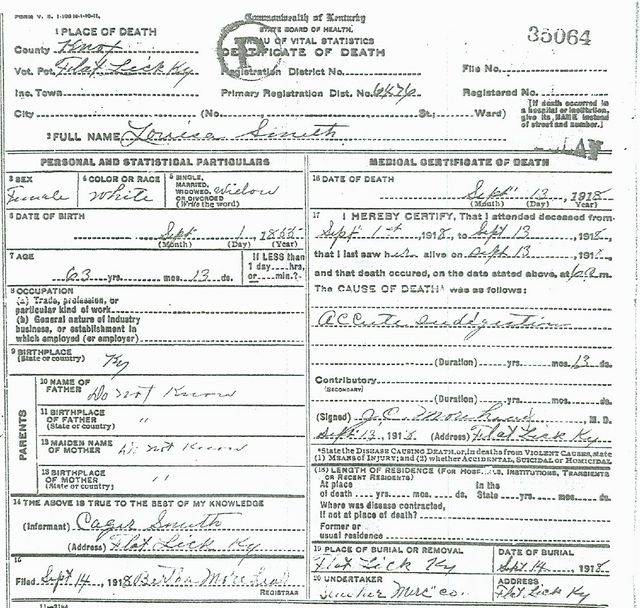 FORM V. S. 1-
Commonwealth of Kentucky
STATE BOARD OF HEALTH.
BUREAU OF VITAL STATISTICS
CERTIFICATE OF DEATH
35064
1 PLACE OF DEATH
County Knox
Vot. Pct. Flat Lick Ky
Registration District No.
File No.
Inc. Town
Primary Registration Dist. No. 6476
Registered No.
City (No. St.; Ward)
[If death occurred in a hospital or institution, give its NAME instead of street and number.]
2 FULL NAME Louisa Smith
PERSONAL AND STATISTICAL PARTICULARS
3 SEX
Female
4 COLOR OR RACE
White
5 SINGLE, MARRIED, WIDOWED, OR DIVORCED
(Write the word)
Widow
6 DATE OF BIRTH
Sept 1, 1855
(Month) (Day) (Year)
7 AGE
63 yrs. mos. 13 ds.
If LESS than
1 day....hrs.
or.....min.?
8 OCCUPATION
(a) Trade, profession, or
particular kind of work
(b) General nature of industry
business, or establishment in
which employed (or employer)
9 BIRTHPLACE
(State or country)
Ky
PARENTS
10 NAME OF
FATHER Do not Know
11 BIRTHPLACE
OF FATHER "
(State or country)
12 MAIDEN NAME
OF MOTHER Do not Know
13 BIRTHPLACE
OF MOTHER "
(State or country)
14 THE ABOVE IS TRUE TO THE BEST OF MY KNOWLEDGE
(Informant) Cager Smith
(Address) Flat Lick Ky
15
Filed Sept 14, 1918 Bertha Morehead
REGISTRAR
MEDICAL CERTIFICATE OF DEATH
16 DATE OF DEATH
Sept 13, 1918
(Month) (Day) (Year)
17 I HEREBY CERTIFY, That I attended deceased from
Sept 1st, 1918, to Sept 13, 1918,
that I last saw her alive on Sept 13, 1918,
and that death occured, on the date stated above, at m.
The CAUSE OF DEATH* was as follows:
Accute indigestion
(Duration) yrs. mos. 13 ds.
Contributory
(SECONDARY)
(Duration) yrs. mos. ds.
(Signed) J.C. Morehead, M. D.
Sept 13, 1918 (Address) Flat Lick Ky
*State the DISEASE CAUSING DEATH, or, in deaths from VIOLENT CAUSES, state
(1) MEANS OF INJURY; and (2) whether ACCIDENTAL, SUICIDAL or HOMICIDAL
(18) LENGTH OF RESIDENCE (FOR HOSPITALS, INSTITUTIONS, TRANSIENTS
OR RECENT RESIDENTS)
At place
of death yrs. mos. ds.
In the
State yrs. mos. ds.
Where was disease contracted,
if not at place of death?
Former or
usual residence
19 PLACE OF BURIAL OR REMOVAL
Flat Lick Ky
DATE OF BURIAL
Sept 14, 1918
20 UNDERTAKER
Merc Co.
ADDRESS
Flat Lick Ky